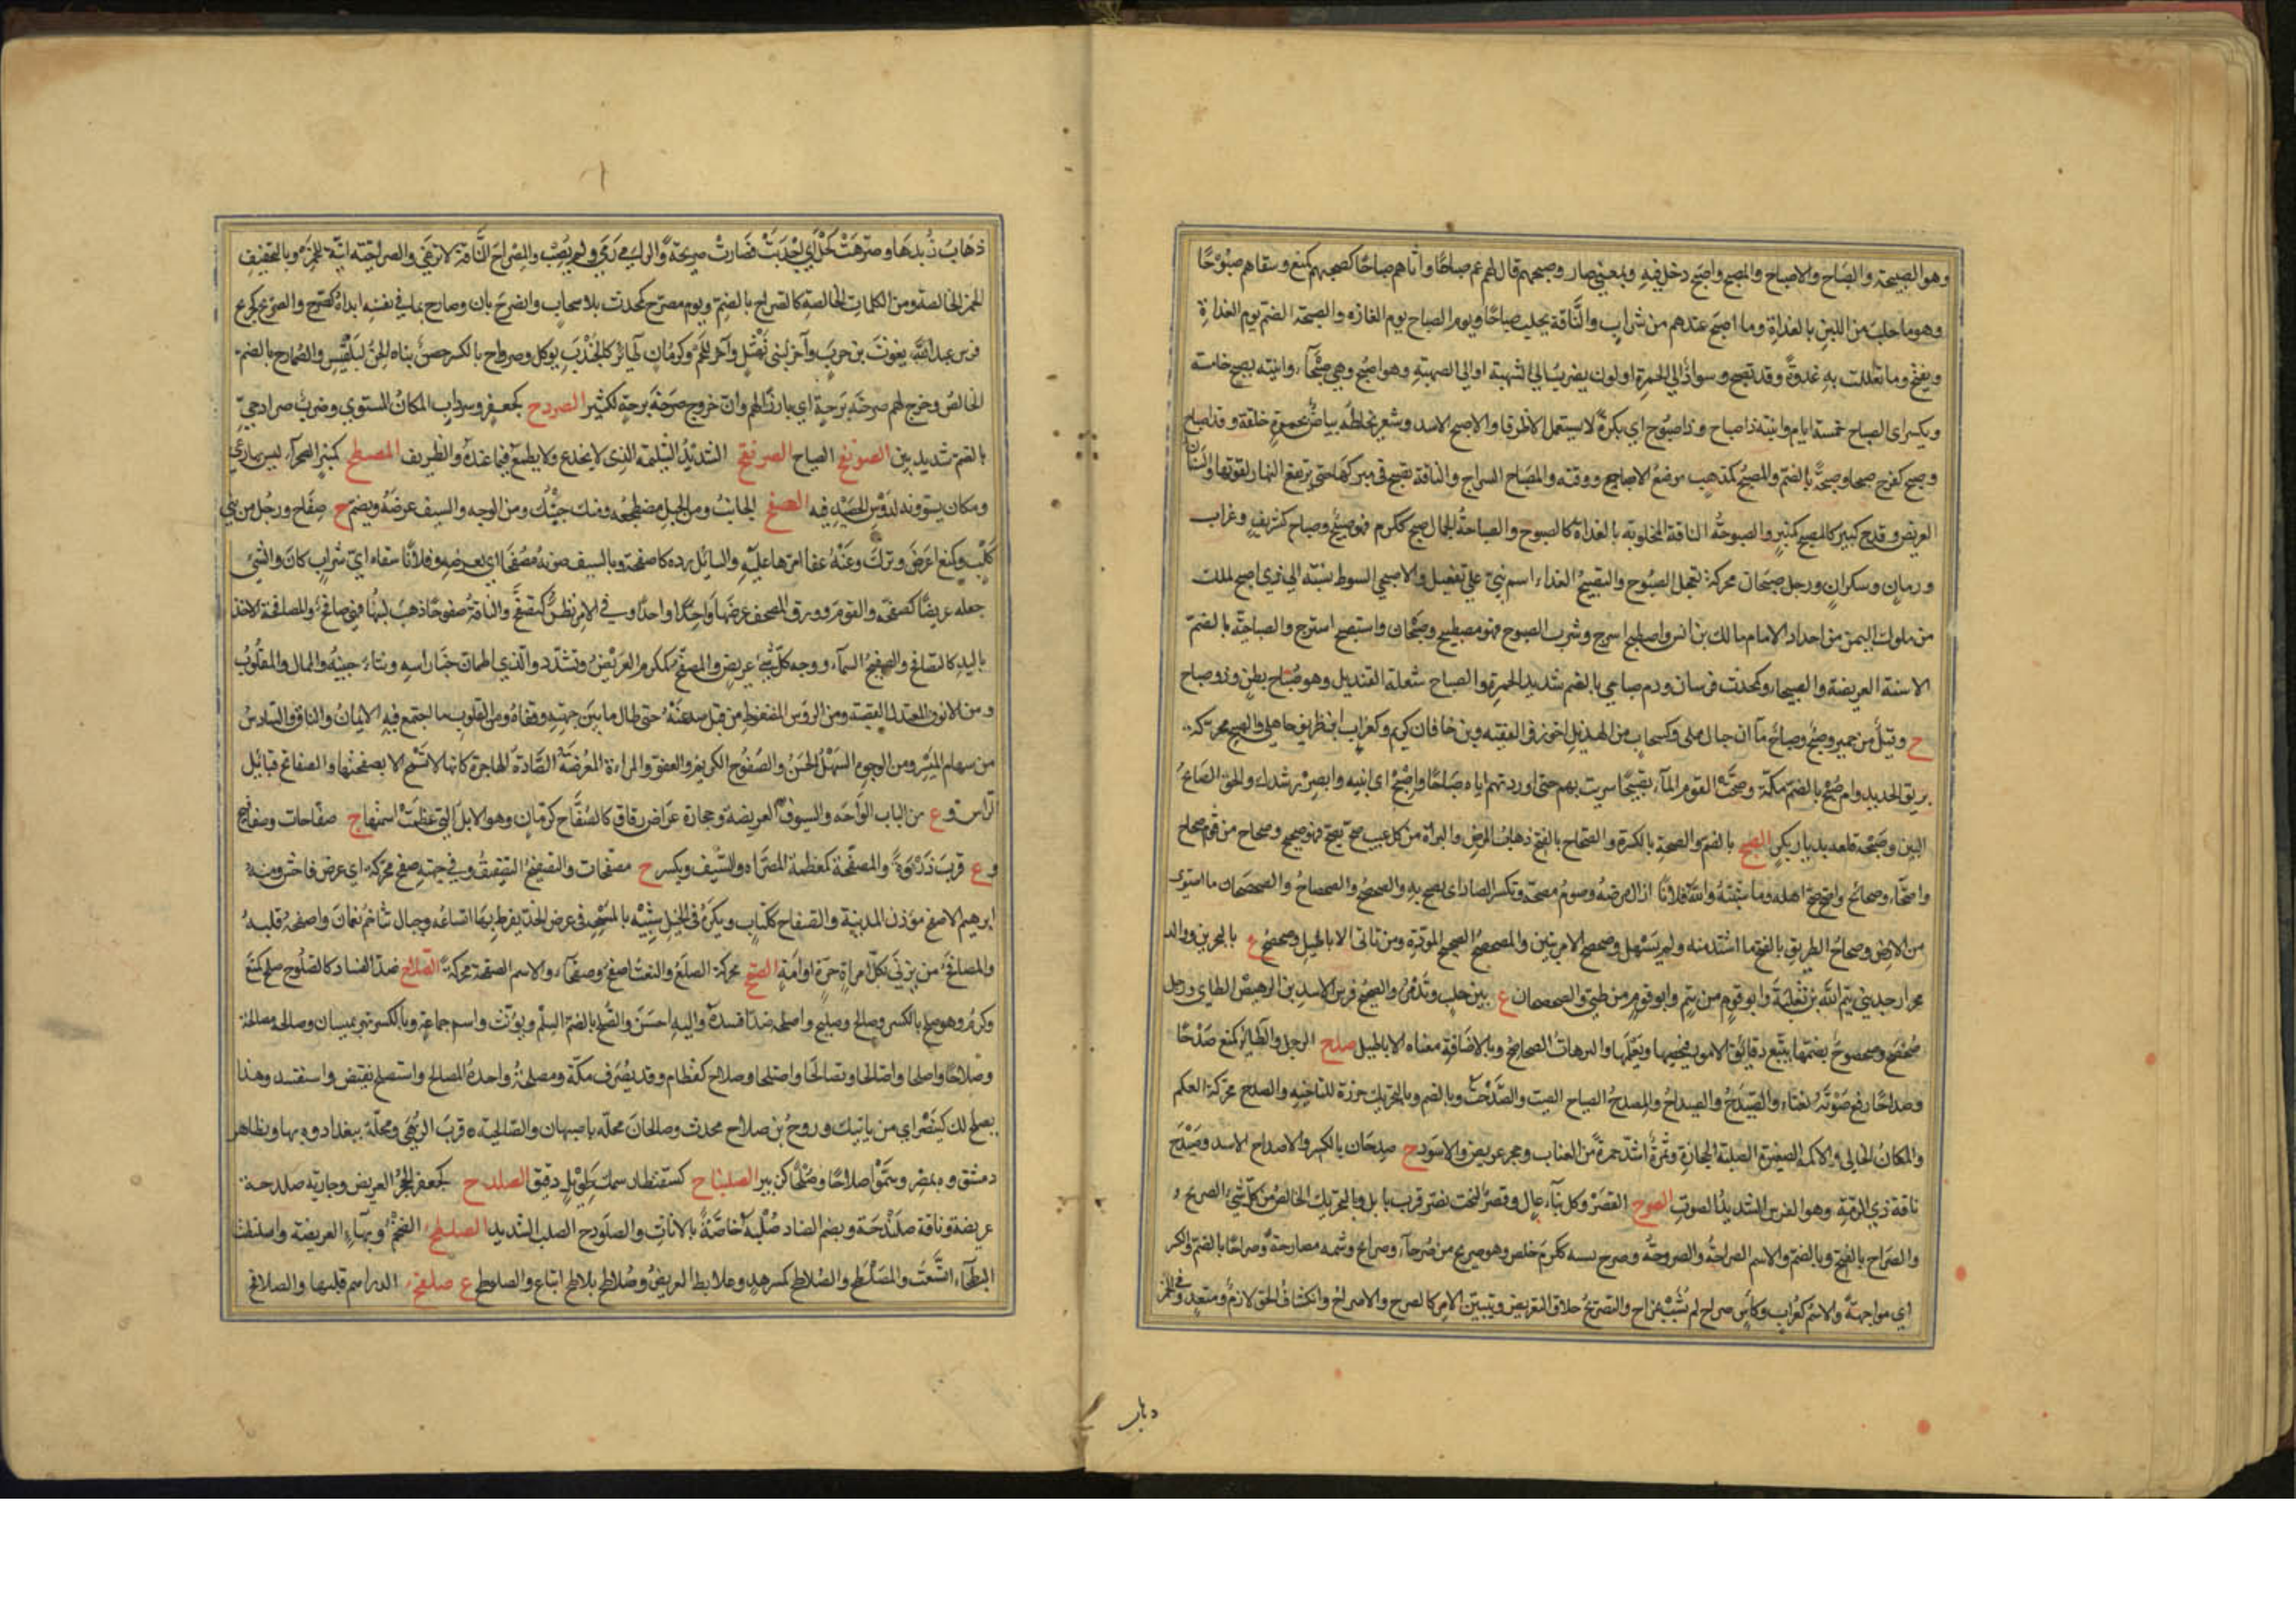 وهو الصبيحة والصباح والاصباح والمصبح واصبح دخل فيه وبمعنى صار وصبحهم قال لهم عم صباحًا واتاهم صباحًا كصبحهم كمنع وسقاهم صبوحًا
وهو ما حلب من اللبن بالغداة وما اصبح عندهم من شراب والناقة يحلب صباحًا ويوم الصباح يوم الغارة والصبحة بالضم نوم الغداة
ويفتح وما تعللت به غدوة وقد تصبح وسواد الى الحمرة او لون يضرب الى الشهبة او الى الصهبة وهو اصبح وهي صبحاء واتيته لصبح خامسة
ويكسر اى لصباح خمسة ايام واتيته ذا صباح وذا صبوح اي بكرة لا يستعمل الا ظرفا والاصبح الاسد وشعر يخلطه بياض بحمرة خلقة وقد اصباح
وصبح كفرح صبحا وصبحة بالضم والمصبح كمذهب موضع الاصباح ووقته والمصباح السراج والناقة تصبح فى مبركها حتى يرتفع النهار لقوتها والسنان
العريض وقدح كبير كالمصبح كمنبر والصبوحة الناقة المحلوبة بالغداة كالصبوح والصباحة الجمال صبح ككرم فهو صبيح وصباح كشريف وغراب
ورمان وسكران ورجل صبحان محركة تعجل الصبوح والتصبيح الغداء اسم بني على تفعيل والاصبحي السوط نسبة الى ذى اصبح لملك
من ملوك اليمن من اجداد الامام مالك بن انس واصطبح اسرج وشرب الصبوح فهو مصطبح وصبحان واستصبح استسرج والصباحية بالضم
الاسنة العريضة والصبحاء وكمحدث فرسان ودم صباحي بالضم شديد الحمرة والصباح شعلة القنديل وبنو صباح بطن وذو صباح
ح وقيل من حمير وصبح وصباح ماآن حيال ملى وكسحاب من الهذيل اخو زفر الفقيه وبن خاقان كريم وكغراب ابن ظريف جاهلي والصبح محركة
بريق الحديد وام صبح بالضم مكة وصبحت القوم الماء تصبيحًا سريت بهم حتى اوردتهم اياه صباحًا واصبح اى انتبه وابصر رشدك والحق الصابح
البين وصبحة قلعة بديار بكر الصح بالضم والصحة بالكسرة والصحاح بالفتح ذهاب المرض والبراءة من كل عيب صح يصح فهو صحيح وصحاح من قوم صحاح
واصحاء وصحائح واصح صح اهله وماشيته والله فلانا ازال مرضه وصوم مصحة وتكسر الصاد اى يصح به والصحصح والصحصاح والصحصحان ما استوى
من الارض وصحاح الطريق بالفتح ما اشتد منه ولم يسهل وصحصح الامر تبين والمصحصح الصحيح المودة ومن ياتى الاباطيل وصحصح ع بالبحرين ووالد
محرار جد بني تيم الله بن ثعلبة وابو قوم من تيم وابو قوم من طيئ والصحصحان ع بين حلب وتدمر والصحيح فرس لاسد بن الرهيص الطايي ورجل
صحصح وصحصوح بضمهما يتتبع دقائق الامور فيحصيها ويعلمها والترهات الصحاصح وبالاضافة معناه الاباطيل صدح الرجل والطائر كمنع صدحًا
وصداحًا رفع صوته بغناء والصيدح والصيداح والمصدح الصياح الصيت والصدحة وبالضم وبالتحريك خرزة للتاخيذ والصدح محركة العلم
والمكان الخالي والاكمة الصغيرة الصلبة الحجارة وثمرة اشد حمرة من العناب وحجر عريض والاسود ج صدحان بالكسر والاصدح الاسد وصيدح
ناقة ذي الرمة وهو الفرس الشديد الصوت الصرح القصر وكل بناء عال وقصر لبخت نصر قرب بابل وبالتحريك الخالص من كل شيء الصريح و
والصراح بالفتح وبالضم والاسم الصراحة والصروحة وصرح نسبه ككرم خلص وهو صريح من صرحاء وصرائح وشتمه مصارحة وصراحًا بالضم والكسر
اي مواجهة والاسم كغراب وكأس صراح لم تشب بمزاج والتصريح خلاف التعريض وتبيين الامر كالصرح والاصراح وانكشاف الحق لازم ومتعد وفى الخمر
ذهاب
ذهاب زبدها وصرحت كحل اي اجدبت فصارت صريحة والرامي رمى ولم يصب والمصراح الناقة لا ترغي والصراحية انية للخمر وبالتخفيف
الخمر الخالصة ومن الكلمات الخالصة كالصراح بالضم ويوم مصرح كمحدث بلا سحاب وانصرح بان وصارح بما في نفسه ابداه كصرح والصريح كجريح
فرس عبد يغوث بن حرب وآخر لبنى نهشل وآخر للخم وكرمان طائر كالجندب يؤكل وصرواح بالكسر حصن بناه الجن لبلقيس والصمارح بالضم
الخالص وخرج لهم صرحة برحة اي بارزا لهم وان خروج صرحة برحة لكثير الصردح كجعفر وسرداب المكان المستوي وضرب صرادحي
بالضم شديد بين الصرنفح الصياح الصرنقح الشديد الشكيمة الذى لا يخدع ولا يطمع فيما عنده والظريف المصطح كمنبر الصحراء ليس بها رعي
ومكان يسوونه لدوس الحصيد فيه الصفح الجانب ومن الجبل مضطجعه ومنك جنبك ومن الوجه والسيف عرضه ويضم ج صفاح ورجل من بني
كلب وكمنع اعرض وترك وعنه عفا والسائل رده كاصفحه وبالسيف ضربه مصفحا اي بعرضه وفلانا سقاه اي شراب كان والشيء
جعله عريضًا كصفحه والقوم وورق المصحف عرضها واحدًا واحدًا وفي الامر نظر كتصفح والناقة صفوحا ذهب لبنها فهي صافح والمصافحة الاخذ
باليد كالتصافح والصفيح السماء ووجه كل شيء عريض والمصفح كمكرم العريض وتشدد والذي اطمان جنبا راسه ونتا جبينه والممال والمقلوب
ومن الانوف المعتدل القصبة ومن الرؤس المضغوط من قبل صدغيه حتى طال ما بين جبهته وقفاه ومن القلوب ما اجتمع فيه الايمان والنفاق والسادس
من سهام الميسر ومن الوجوه السهل الحسن والصفوح الكريم والعفو والمراءة المعرضة الصادة الهاجرة كانها لا تسمح الا بصفحتها والصفائح قبائل
الراس وع من الباب الواحه والسيوف العريضة وحجارة عراض رقاق كالصفاح كرمان وهو الابل التي عظمت اسنمتها ج صفاحات وصفافيح
وع قرب ذروة والمصفحة كمعظمة المصراة والسيف ويكسر ج مصفحات والتصفيح التصفيق وفي جبهته صفح محركة اي عرض فاحش ومنه
ابرهيم الاصفح مؤذن المدينة والصفاح ككتاب ويكره فى الخيل شبيه بالمسحة فى عرض الخد يفرط بها اتساعه وجبال تتاخم نعمان واصفحه قلبه
والمصافح من يزني بكل امراة حرة او امة الصقح محركة الصلع والنعت اصقح وصقحاء والاسم الصقحة محركة الصلاح ضد الفساد كالصلوح صلح كمنع
وكرم وهو صلح بالكسر وصالح وصليح واصلحه ضد افسده واليه احسن والصلح بالضم السلم ويؤنث واسم جماعة وبالكسر نهر بميسان وصالحه مصالحة
وصلاحًا واصلحا واصالحا وتصالحا واصتلحا وصلاح كقطام وقد يصرف مكة والمصلحة واحدة المصالح واستصلح نقيض واستفسد وهذا
يصلح لك كينصر اي من يابتك وروح بن صلاح محدث وصالحان محلة باصبهان والصالحية ة قرب الرهى ومحلة ببغداد وة بها وبظاهر
دمشق وة بمصر وسموا صلاحًا وصلحا كزبير الصلنباح كسقنطار سمك طويل دقيق الصلدح كجعفر الحجر العريض وجارية صلدحة
عريضة وناقة صلندحة وبضم الصاد صلبة خاصة بالاناث والصلودح الصلب الشديد الصلطح الضخم وبهاء العريضة واصلنطحت
البطحاء اتسعت والمصلطح والصلاطح كمسرهد وعلابط العريض وصلاطح بلاطح اتباع والصلوطح ع صلفح الدراهم قلبها والصلافح